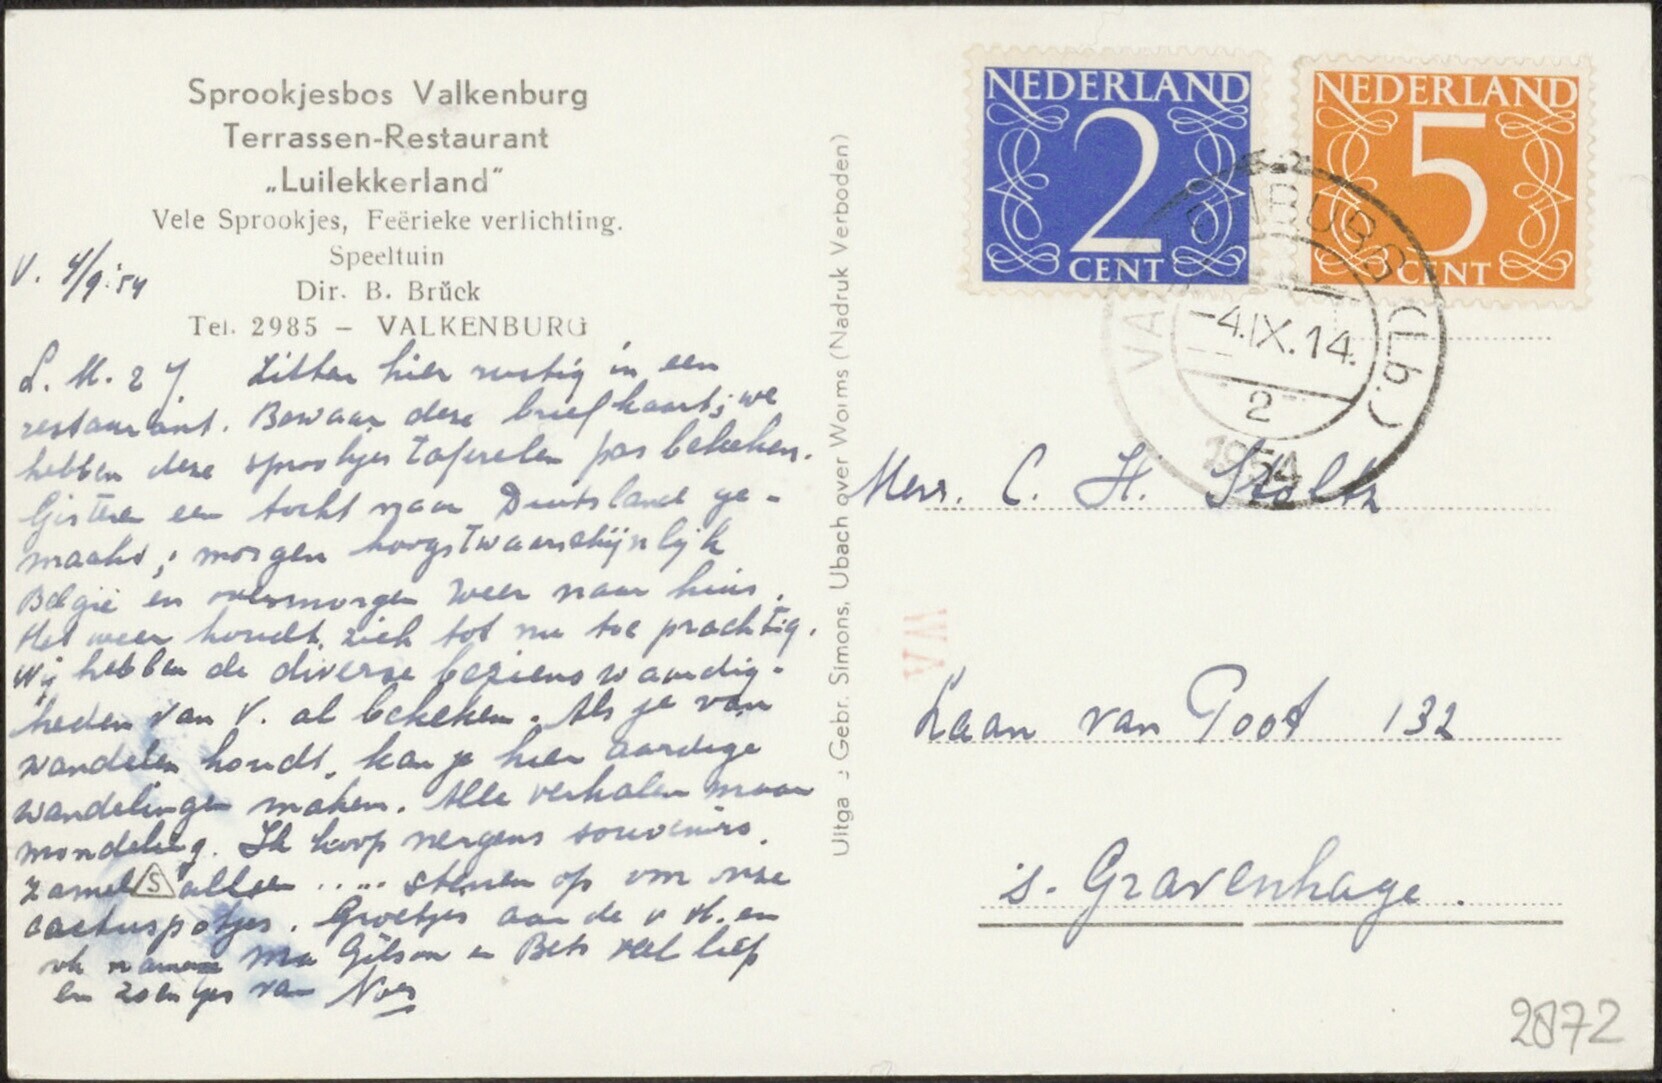 Sprookjesbos Valkenburg
Terrassen-Restaurant
„Luilekkerland"
Vele Sprookjes, Feërieke verlichting.
Speeltuin
Dir. B. Brück
Tel. 2985 – VALKENBURG
V. 4/9.'54
L. M. Zitten hier rustig in een
restaurant. Bewaar deze briefkaart; we
hebben deze sprookjes taferelen pas bekeken.
Gisteren een tocht naar Duitsland ge-
maakt; morgen hoogstwaarschijnlijk
België en overmorgen weer naar huis.
Het weer houdt zich tot nu toe prachtig.
Wij hebben de diverse bezienswaardig-
heden van V. al bekeken. Als je van
wandelen houdt, kan je hier aardige
wandelingen maken. Alle verhalen maar
mondeling. Ik koop nergens souvenirs.
Zamel S alleen ..... stenen op om onze
cactuspotjes. Groetjes aan de v. H. en
ook namens Ma Gilson en Bets veel liefs
en zoentjes van Noes
Uitga : Gebr. Simons, Ubach over Worms (Nadruk Verboden)
NEDERLAND
2
CENT
NEDERLAND
5
CENT
VALKENBURG (Lb.)
-4.IX.14.
2
1954
Mevr. C. H. Stoltz
WA
Laan van Poot 132
's-Gravenhage.
2872